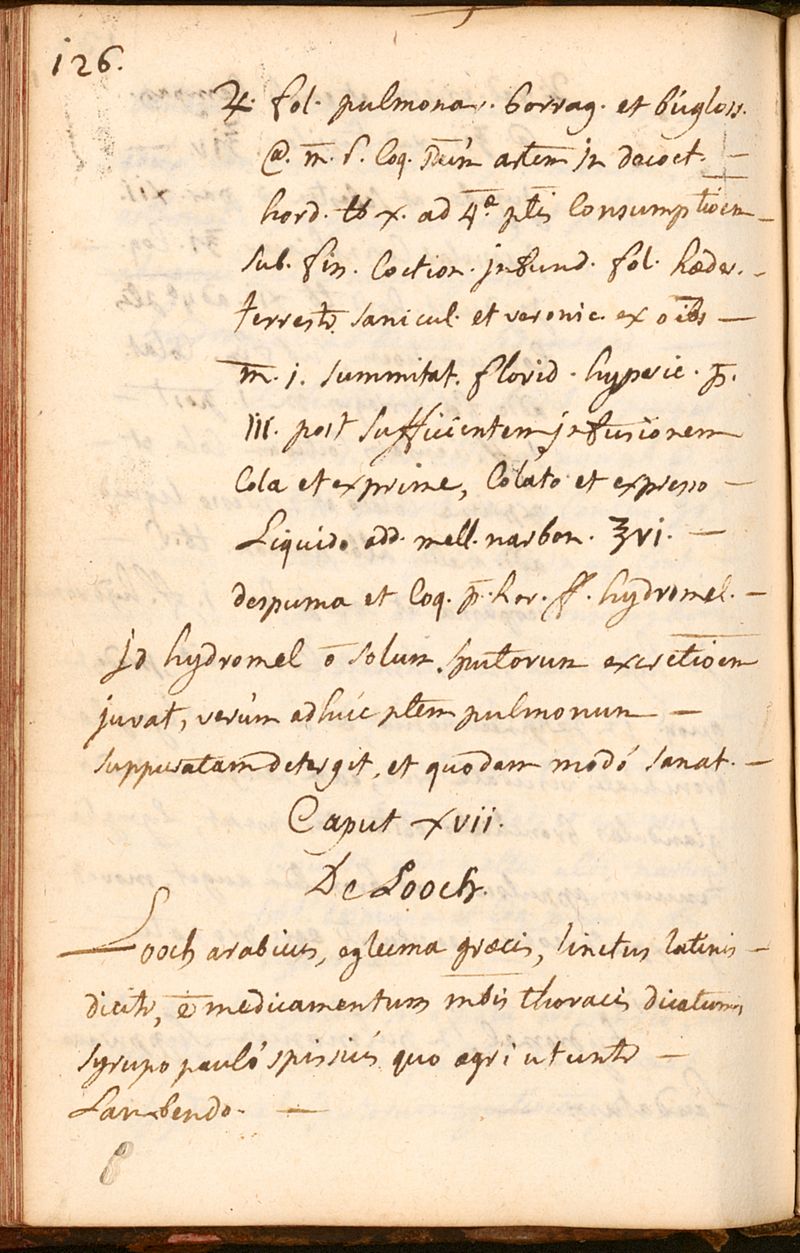 126.
♃. fol. pulmonar. borrag. et bugloss.
@. m̄. s. coq. s̄cum artem in decoct. —
hord. ℔ x. ad 4.ª p̄tis Consumpt̄ioem —
sub. fin. Coction. jnfund. fol. hæder. -
terrestr. sanicul. et veronic. ex oībs —
m̄. j. summitat. florid. hyperic. p̄.
III. post sufficientem jnfusionem
Cola et exprime, Colato et expresso —
Liquido add. mell. narbon. ℥vi. —
despuma et Coq. p̄. hor. ff. hydromel. —
Jd hydromel ō solum sputorum excret̄ioem
juvat, verùm adhuic p̄tem pulmonum —
suppuratam detergit, et quodam modó sanat. —
Caput XVII.
De Looch.
Looch arabicus, eglecma græcis, linctus latinis —
dicitr, ē medicamentum m̄bis thoracis dicatum,
syrupo pauló spissiús quo ægri utuntr —
Lambendo. —